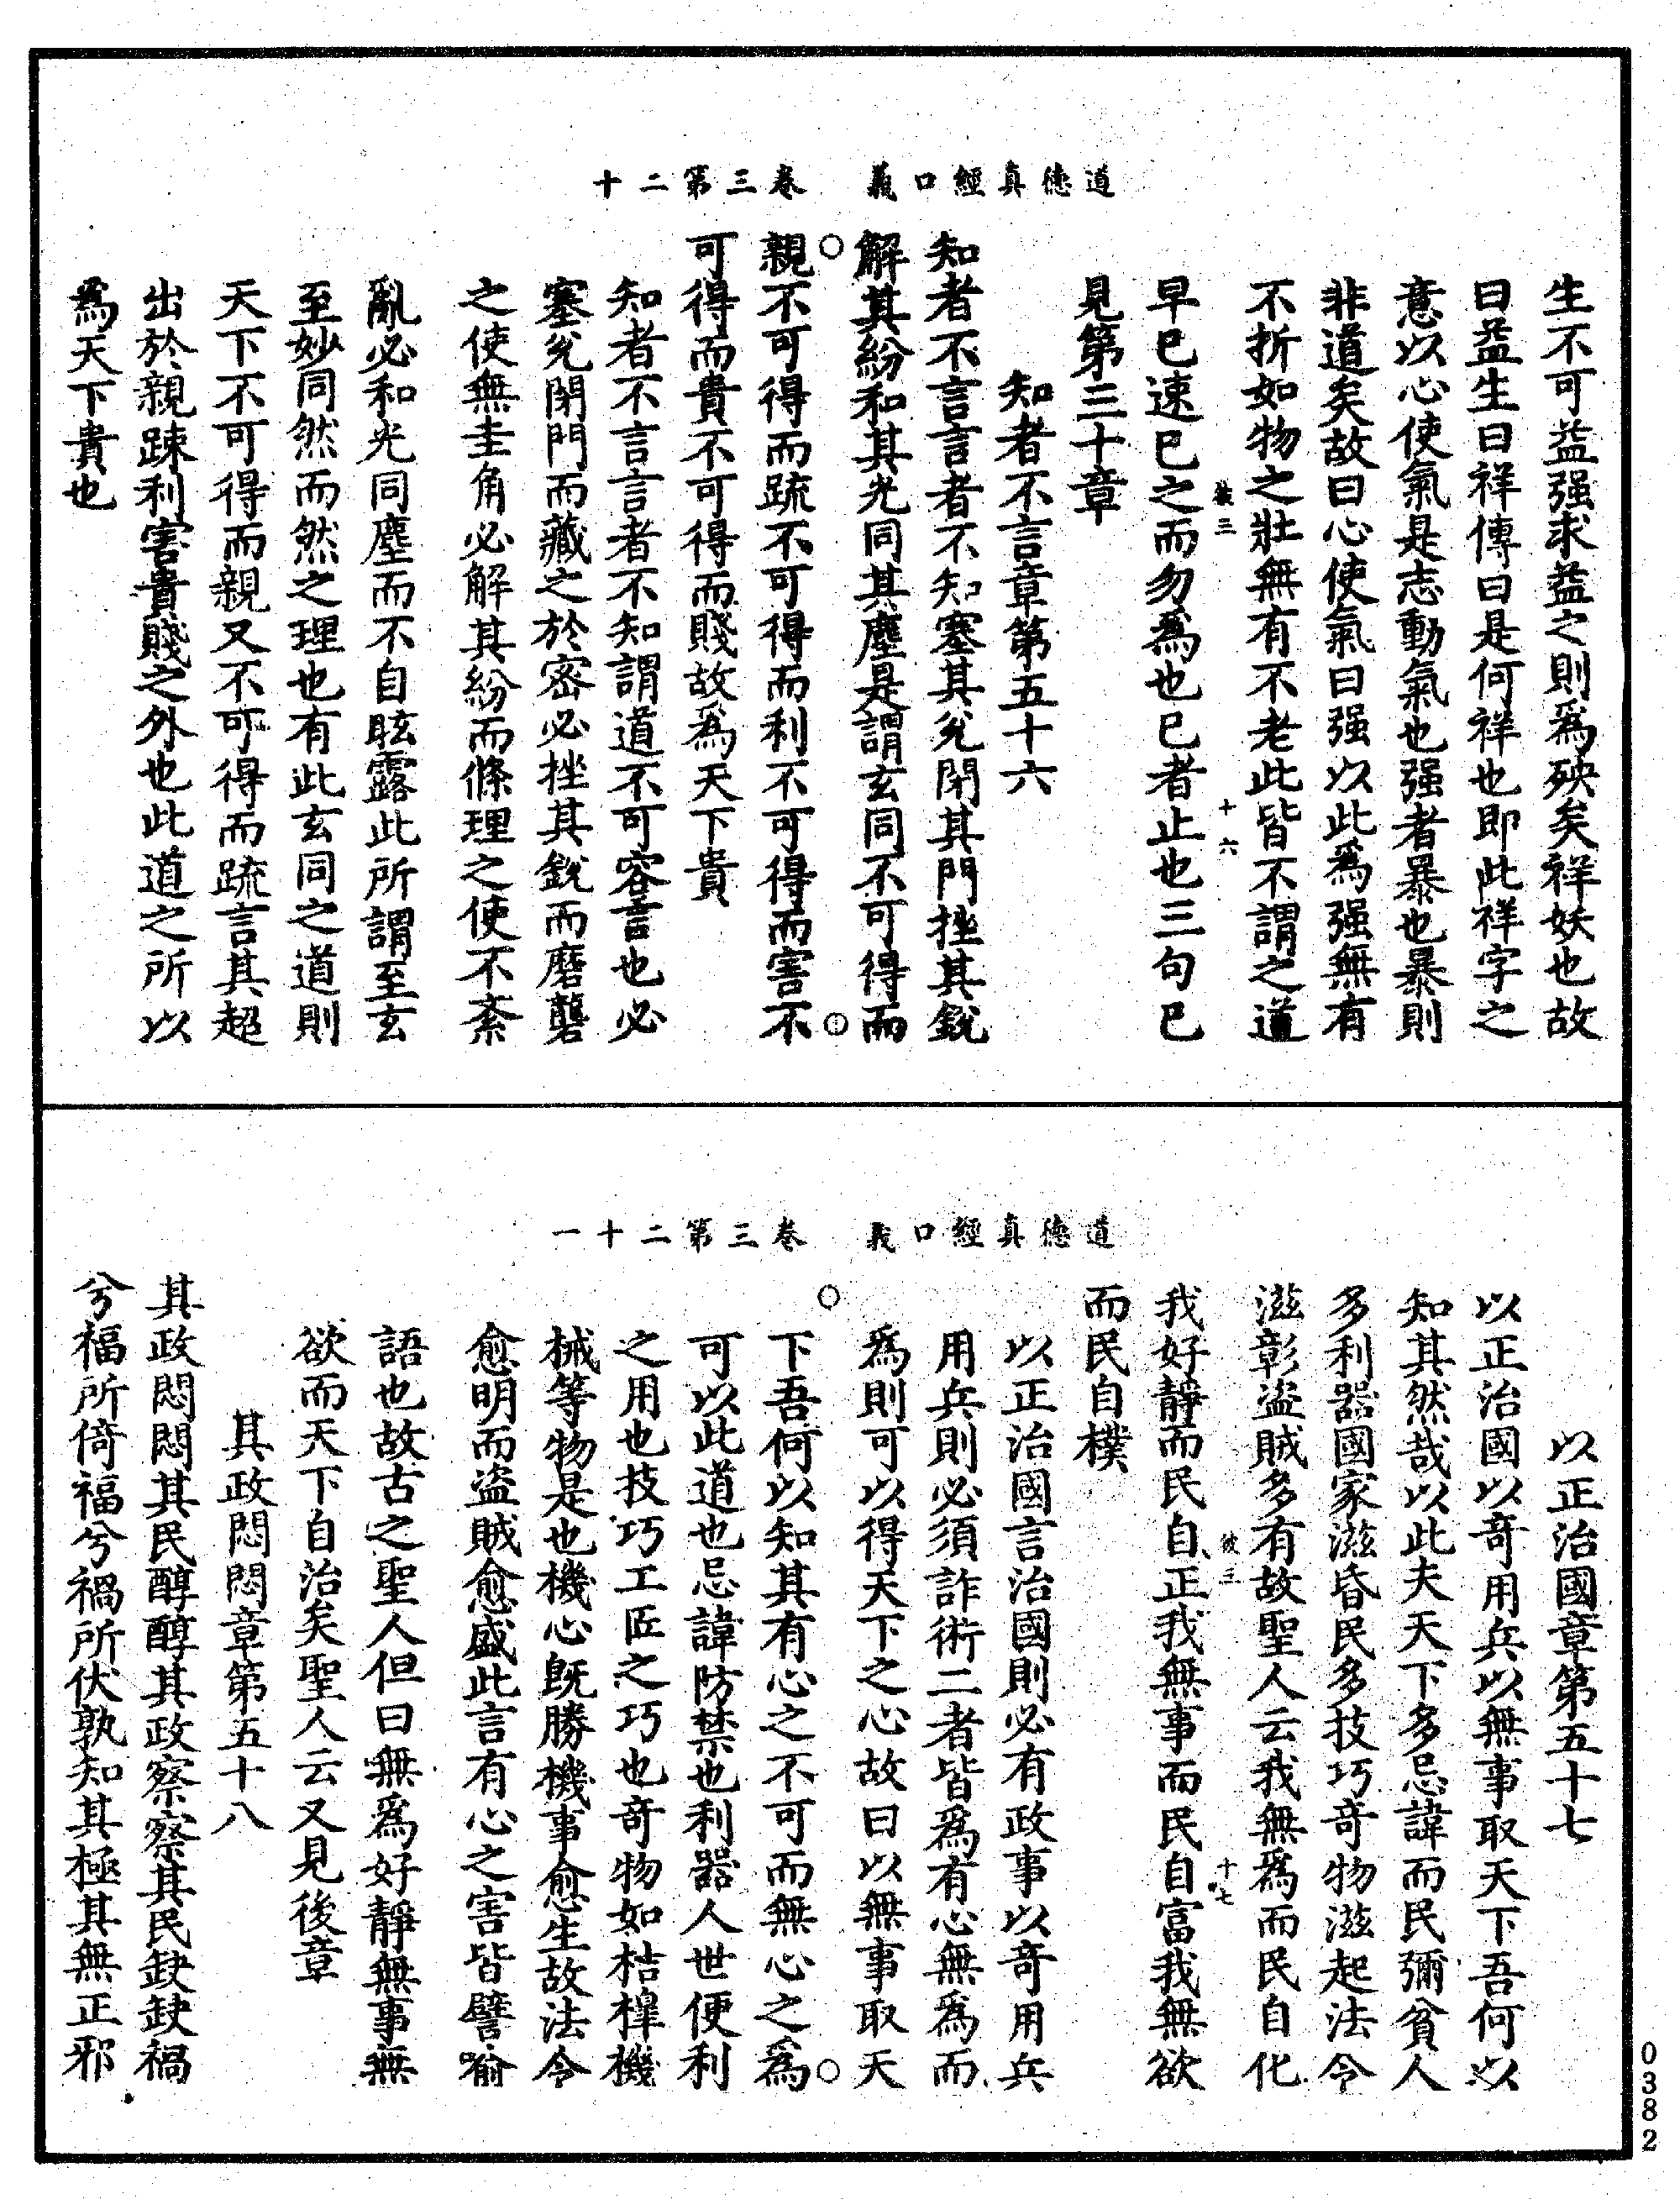 道德真經口義　卷三第二十
生不可益强求益之則爲殃矣祥妖也故
曰益生曰祥傳曰是何祥也即此祥字之
意以心使氣是志動氣也强者暴也暴則
非道矣故曰心使氣曰强以此爲强無有
不折如物之壯無有不老此皆不謂之道
三　十六
早巳速巳之而勿爲也巳者止也三句巳
見第三十章
知者不言章第五十六
知者不言言者不知塞其兌閉其門挫其銳
解其紛和其光同其塵是謂玄同不可得而
親不可得而疏不可得而利不可得而害不
可得而貴不可得而賤故爲天下貴
知者不言言者不知謂道不可容言也必
塞兌閉門而藏之於密必挫其銳而磨礱
之使無圭角必解其紛而條理之使不紊
亂必和光同塵而不自眩露此所謂至玄
至妙同然而然之理也有此玄同之道則
天下不可得而親又不可得而疏言其超
出於親踈利害貴賤之外也此道之所以
爲天下貴也
道德真經口義　卷三第二十一
以正治國章第五十七
以正治國以奇用兵以無事取天下吾何以
知其然哉以此夫天下多忌諱而民彌貧人
多利器國家滋昏民多技巧奇物滋起法令
滋彰盗賊多有故聖人云我無爲而民自化
彼三　十七
我好靜而民自正我無事而民自富我無欲
而民自樸
以正治國言治國則必有政事以奇用兵
用兵則必須詐術二者皆爲有心無爲而
爲則可以得天下之心故曰以無事取天
下吾何以知其有心之不可而無心之爲
可以此道也忌諱防禁也利器人世便利
之用也技巧工匠之巧也奇物如桔槹機
械等物是也機心既勝機事愈生故法令
愈明而盗賊愈盛此言有心之害皆譬喻
語也故古之聖人但曰無爲好靜無事無
欲而天下自治矣聖人云又見後章
其政悶悶章第五十八
其政悶悶其民醇醇其政察察其民缺缺禍
兮福所倚福兮禍所伏孰知其極其無正邪
0382